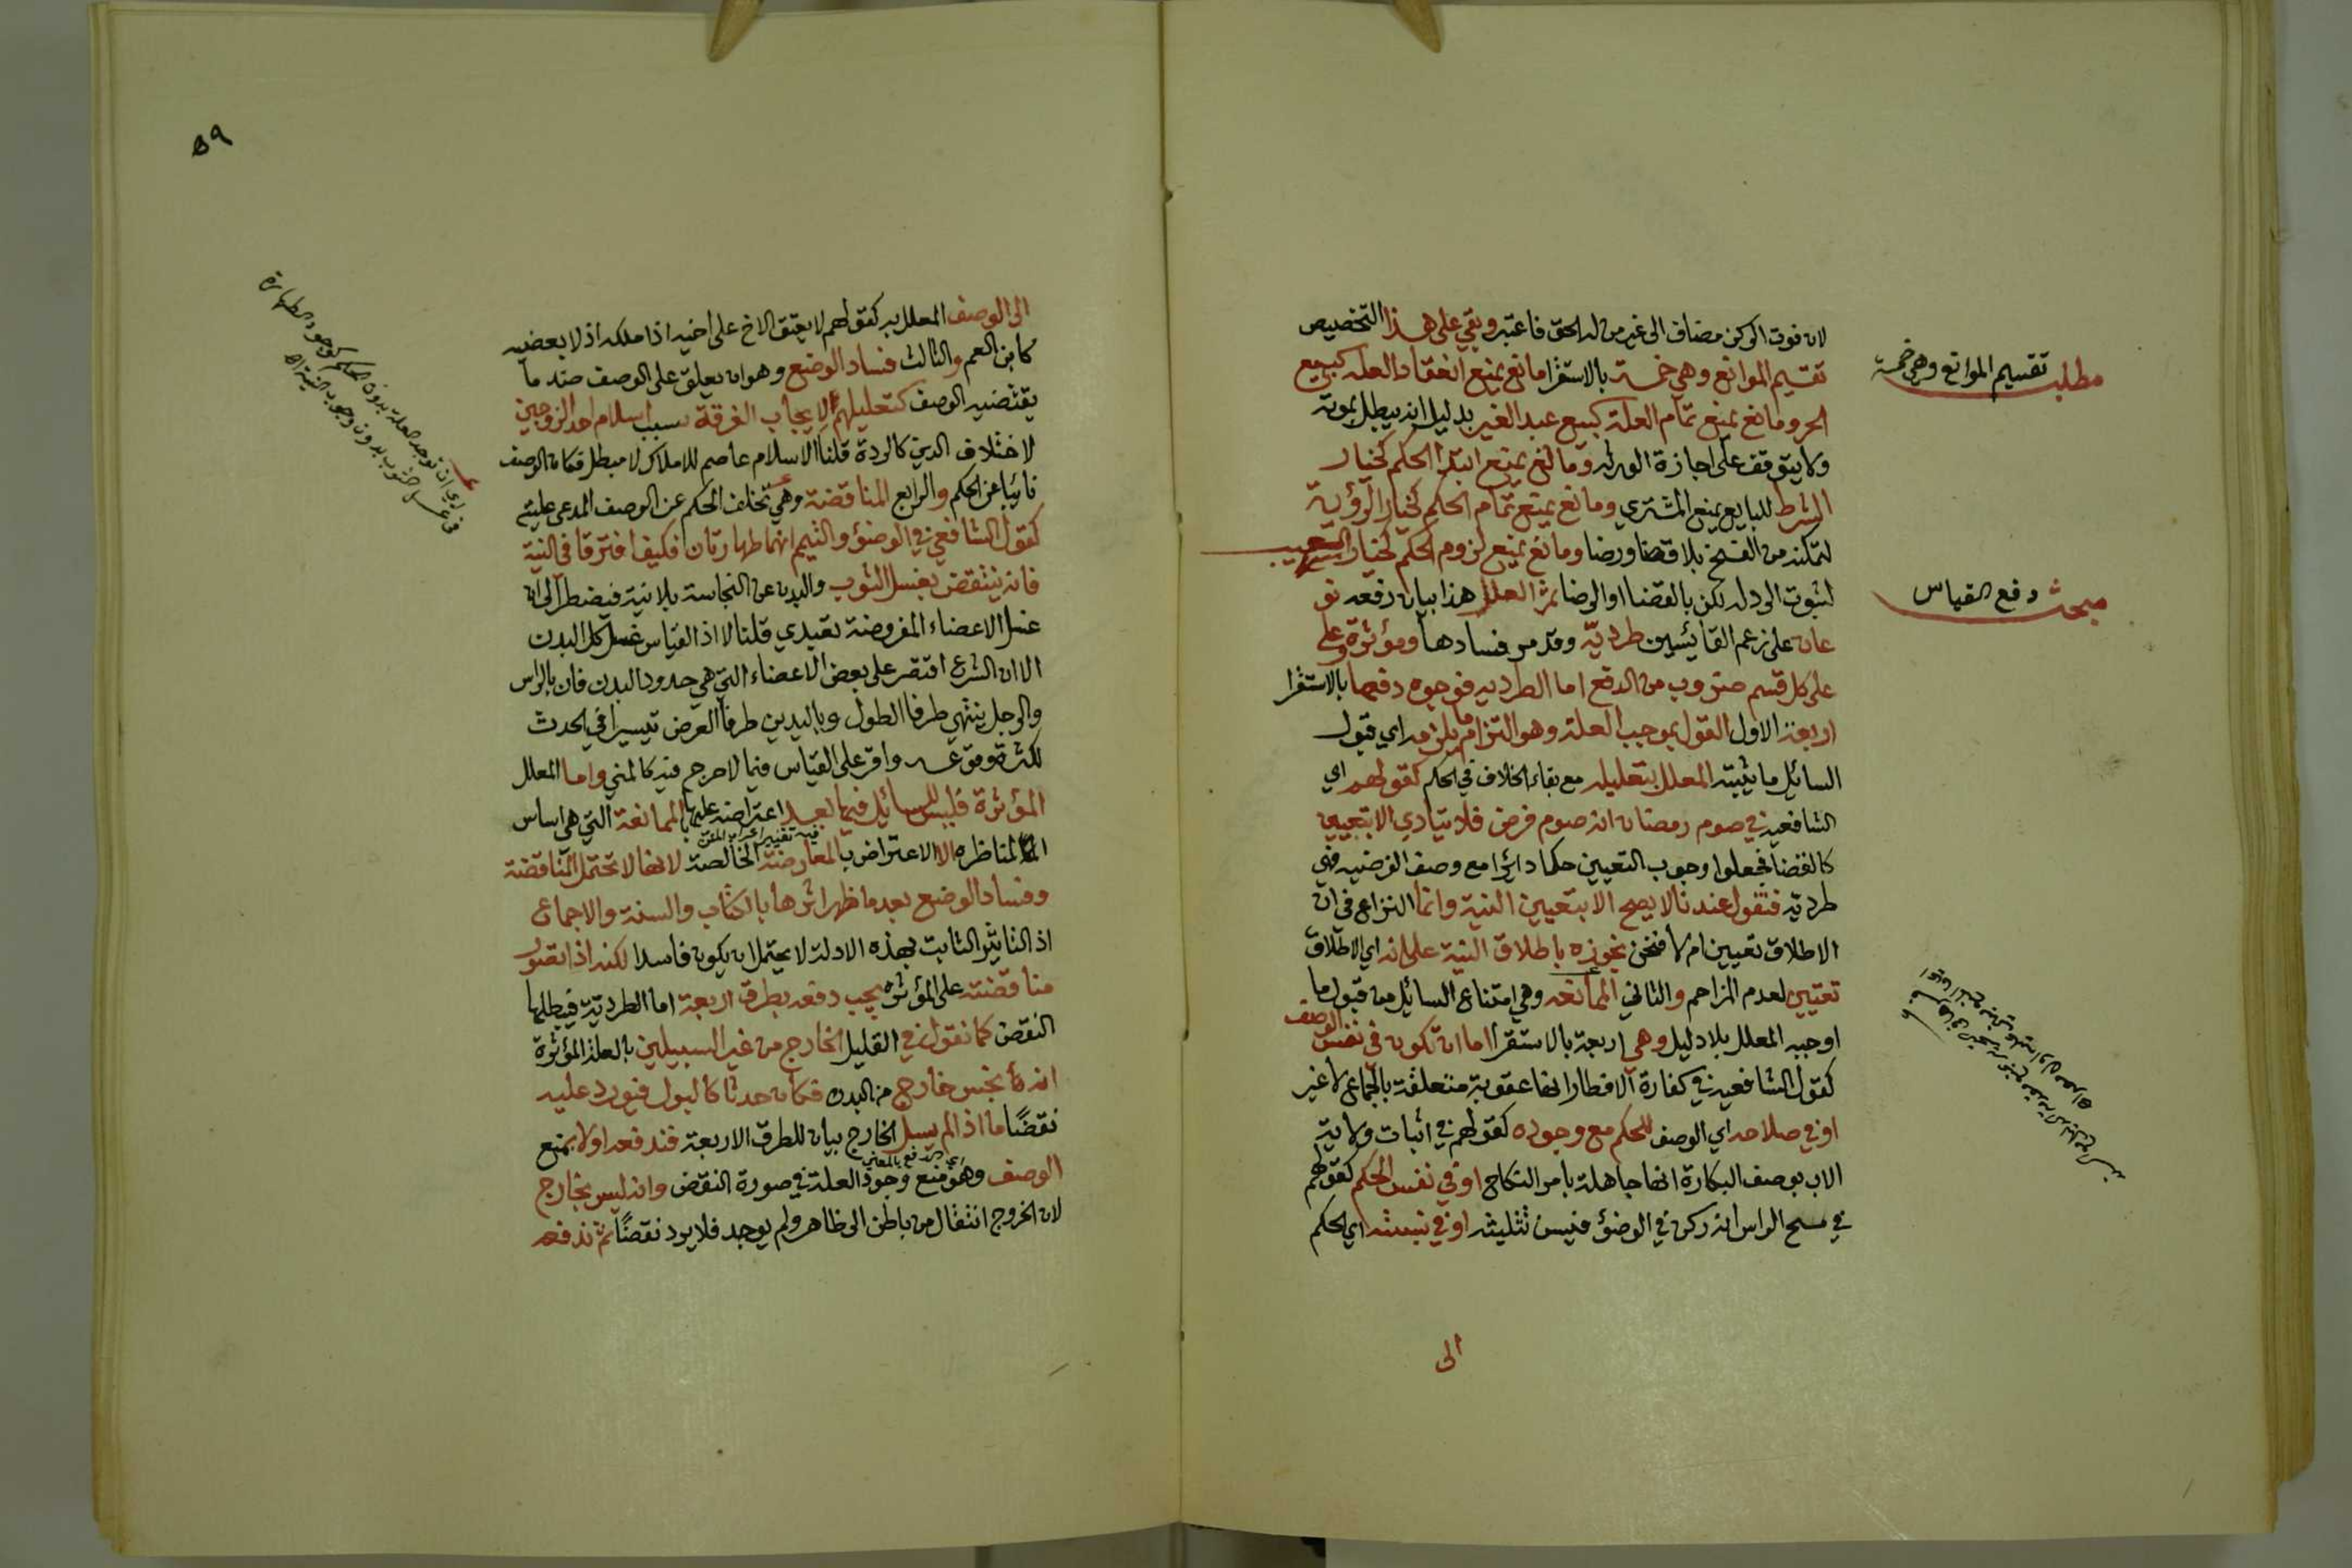 لان فوت الركن مضاف الى غير من له الحق فاعتبر وبقي على هذا التخصيص
تقسيم الموانع وهي خمسة بالاستقرا مانع يمنع انعقاد العله كبيع
الحر ومانع يمنع تمام العلة كبيع عبد الغير بدليل انه يبطل بموته
ولا يتوقف على اجازة الورثه ومانع يمنع ابتدا الحكم كخيار
الشرط للبايع يمنع المشتري ومانع يمنع تمام الحكم كخيار الرؤية
لتمكنه من الفسخ بلا قضا ورضا ومانع يمنع لزوم الحكم كخيار العيب
لثبوت الرد له لكن بالقضا او الرضا ثم العلل هذا بيان دفعه نو
عان على زعم القائسين طرديّة وقد مر فسادها ومؤثرة وعلى
على كل قسم ضروب من الدفع اما الطرديه فوجوه دفعها بالاستقرا
اربعة الاول القول بموجب العلة وهو التزام ما يلزمه اي قبول
السائل ما يثبته المعلل بتعليله مع بقاء الخلاف في الحكم كقولهم اي
الشافعية في صوم رمضان انه صوم فرض فلا يتادي الا بتعيين
كالقضا فجعلوا وجوب التعيين حكما دائرا مع وصف الفرضيه فهي
طردية فنقول عندنا لا يصح الا بتعيين النية وانما النزاع في ان
الاطلاق تعيين ام لا فنحن نجوزه باطلاق النية على انه اي الاطلاق
تعيين لعدم المزاحم والثاني الممانعه وهي امتناع السائل من قبول ما
اوجبه المعلل بلا دليل وهي اربعة بالاستقرا اما ان تكون في نفس الوصف
كقول الشافعيه في كفارة الافطار انها عقوبة متعلقة بالجماع لا غير
او في صلاحه اي الوصف للحكم مع وجوده كقولهم في اثبات ولاية
الاب بوصف البكارة انها جاهلة بامر النكاح او في نفس الحكم كقولهم
في مسح الراس انه ركن في الوضؤ فيسن تثليثه او في نسبته اي الحكم
الى
مطلب تقسيم الموانع وهي خمسة
مبحث دفع القياس
٥٩
الى الوصف المعلل به كقولهم لا يعتق الاخ على اخيه اذا ملكه اذ لا بعضيه
كابن العم والثالث فساد الوضع وهو ان يعلق على الوصف ضد ما
يقتضيه الوصف كتعليلهم لايجاب الفرقة بسبب اسلام احد الزوجين
لاختلاف الدين كالردة قلنا الاسلام عاصم للاملاك لا مبطل فكان الوصف
نائيا عن الحكم والرابع المناقضة وهي تخلف الحكم عن الوصف المدعى عليته
كقول الشافعي في الوضؤ والتيمم انهما طهارتان فكيف افترقا في النية
فانه ينتقض بغسل الثوب والبدن عن النجاسة بلا نية فيضطر الى ان
غسل الاعضاء المفروضة تعبدي قلنا لا اذ القياس غسل كل البدن
الا ان الشرع اقتصر على بعض الاعضاء التي هي حدود البدن فان بالراس
والرجل ينتهي طرفا الطول وباليدين طرفا العرض تيسيرا في الحدث
لكثرة وقوعه واقر على القياس فيما لا حرج فيه كالمني واما العلل
المؤثرة فليس للسائل فيها بعد اعتراضه عليها بالممانعة التي هي اساس
المناظره الا الاعتراض بالمعارضة الخالصة لانها لا تحتمل المناقضة
وفساد الوضع بعد ما ظهر اثرها بالكتاب والسنة والاجماع
اذ التاثير الثابت بهذه الادلة لا يحتمل ان يكون فاسدا لكنه اذا تصور
مناقضته على المؤثره يجب دفعه بطرق اربعة اما الطرديّة فيبطلها
النقض كما نقول في القليل الخارج من غير السبيلين بالعلة المؤثرة
انه نجس خارج من البدن فكان حدثا كالبول فيورد عليه
نقضًا ما اذا لم يسل الخارج بيان للطرق الاربعة فندفعه اولا بمنع
اي الدفع بالمعنى
الوصف وهو منع وجود العلة في صورة النقض وانه ليس بخارج
لان الخروج انتقال من باطن الى ظاهر ولم يوجد فلا يرد نقضًا ثم ندفعه
اي ان توجد العلة بدون الحكم كوجود الطهارة
في غسل الثوب بدون وجوب النية اه